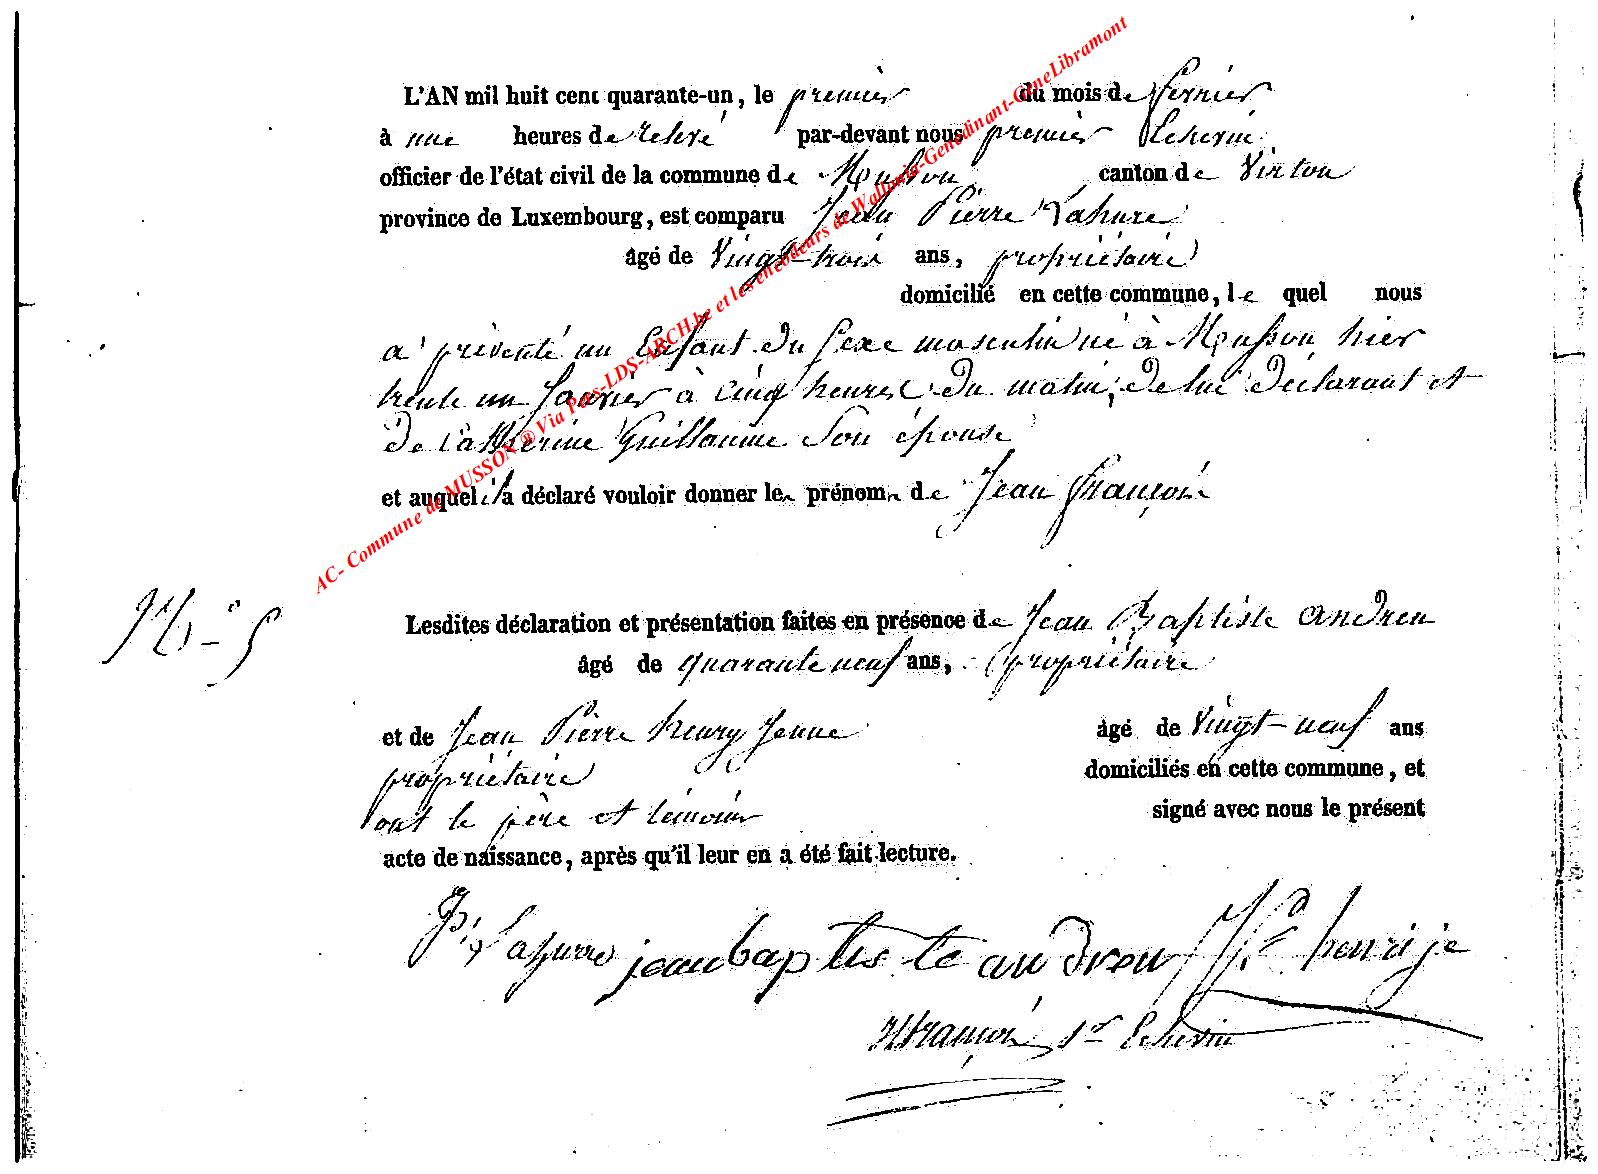 L'AN mil huit cent quarante-un, le premier du mois de fevrier
à une heures de relevé par-devant nous premier Echevin
officier de l'état civil de la commune de Musson canton de Virton
province de Luxembourg, est comparu Jean Pierre Lahure
âgé de vingt-trois ans, propriétaire
domicilié en cette commune, le quel nous
a présenté un Enfant du sexe masculin né à Musson hier
trente un Janvier à cinq heures du matin, de lui déclarant et
de Catherine Guillaume son épouse
et auquel il a déclaré vouloir donner les prénoms de Jean François
N° 5
Lesdites déclaration et présentation faites en présence de Jean Baptiste andreu
âgé de quarante neuf ans, propriétaire
et de Jean Pierre henry Jeune âgé de vingt-neuf ans
propriétaire domiciliés en cette commune, et
ont le père et témoins signé avec nous le présent
acte de naissance, après qu'il leur en a été fait lecture.
Lahure jean baptiste andreu henri je
françois 1er Echevin
AC- Commune de MUSSON ® Via Pays-LDS-ARCH.be et les encodeurs de Wallonia-Genedinant-GéneLibramont